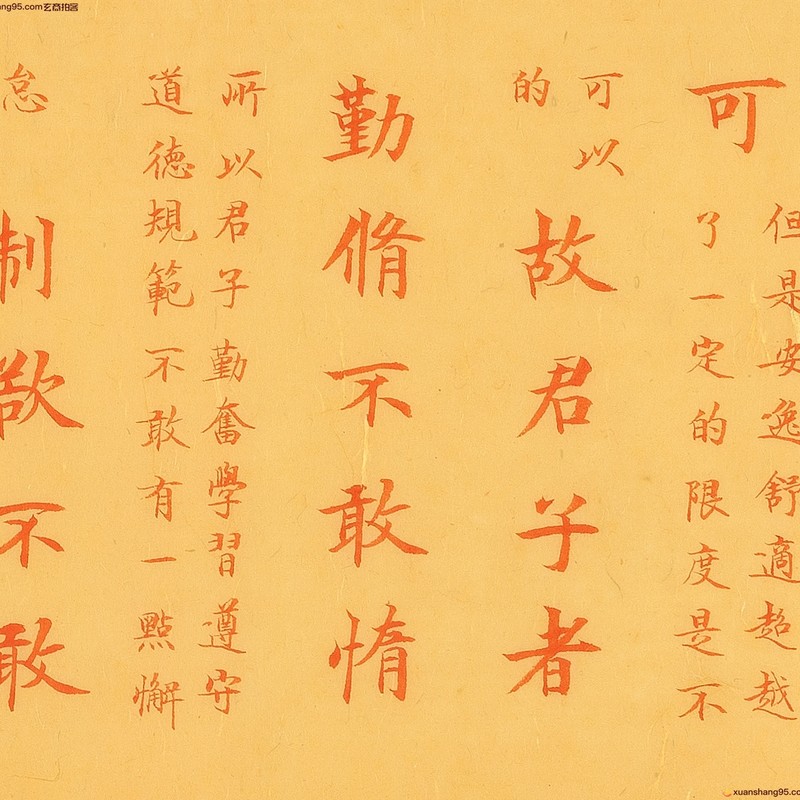 可
但是安逸舒適超越
了一定的限度是不
可以
的
故君子者
勤脩不敢惰
所以君子勤奮學習遵守
道德規範不敢有一點懈
怠
制欲不敢
ang95.com玄商拍客
xuanshang95.co